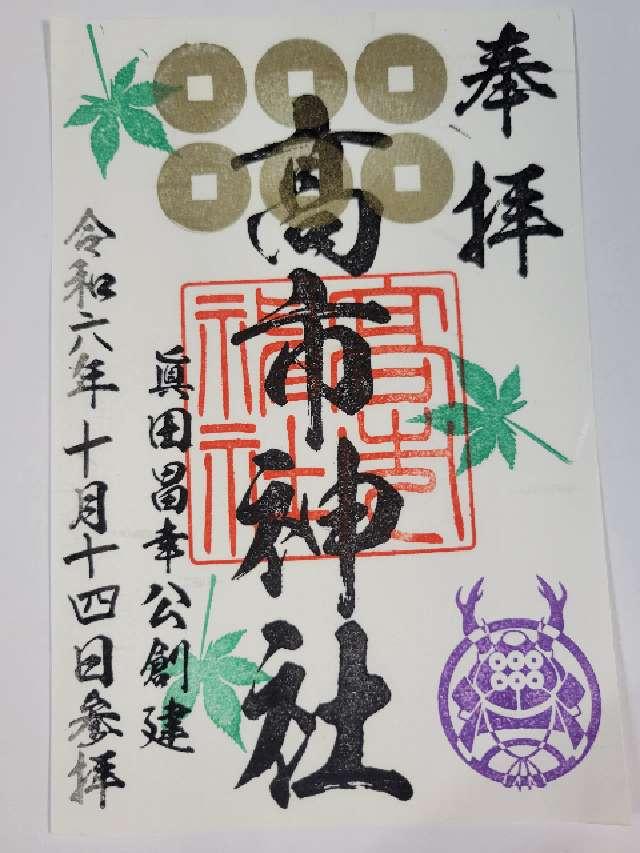 奉拝
高市神社
高市神社
眞田昌幸公創建
令和六年十月十四日参拝